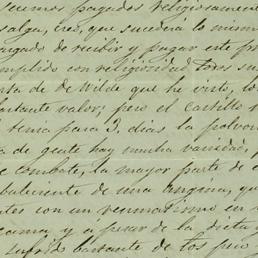 seremos pagados religiosamente
salga, creo, que sucederá lo mismo
argado de recibir y pagar este pr
umplido con religiosidad todos su
rta de de Wilde que he visto, lo
bastante valor; pero el castillo n
tenia para 3 dias la polvor
a de gente hay mucha variedad, p
e combate, la mayor parte de e
baleciente de una angina, qu
tes con un reumatismo en
cama, y a pesar de la dieta y
sufrido bastante de los pies